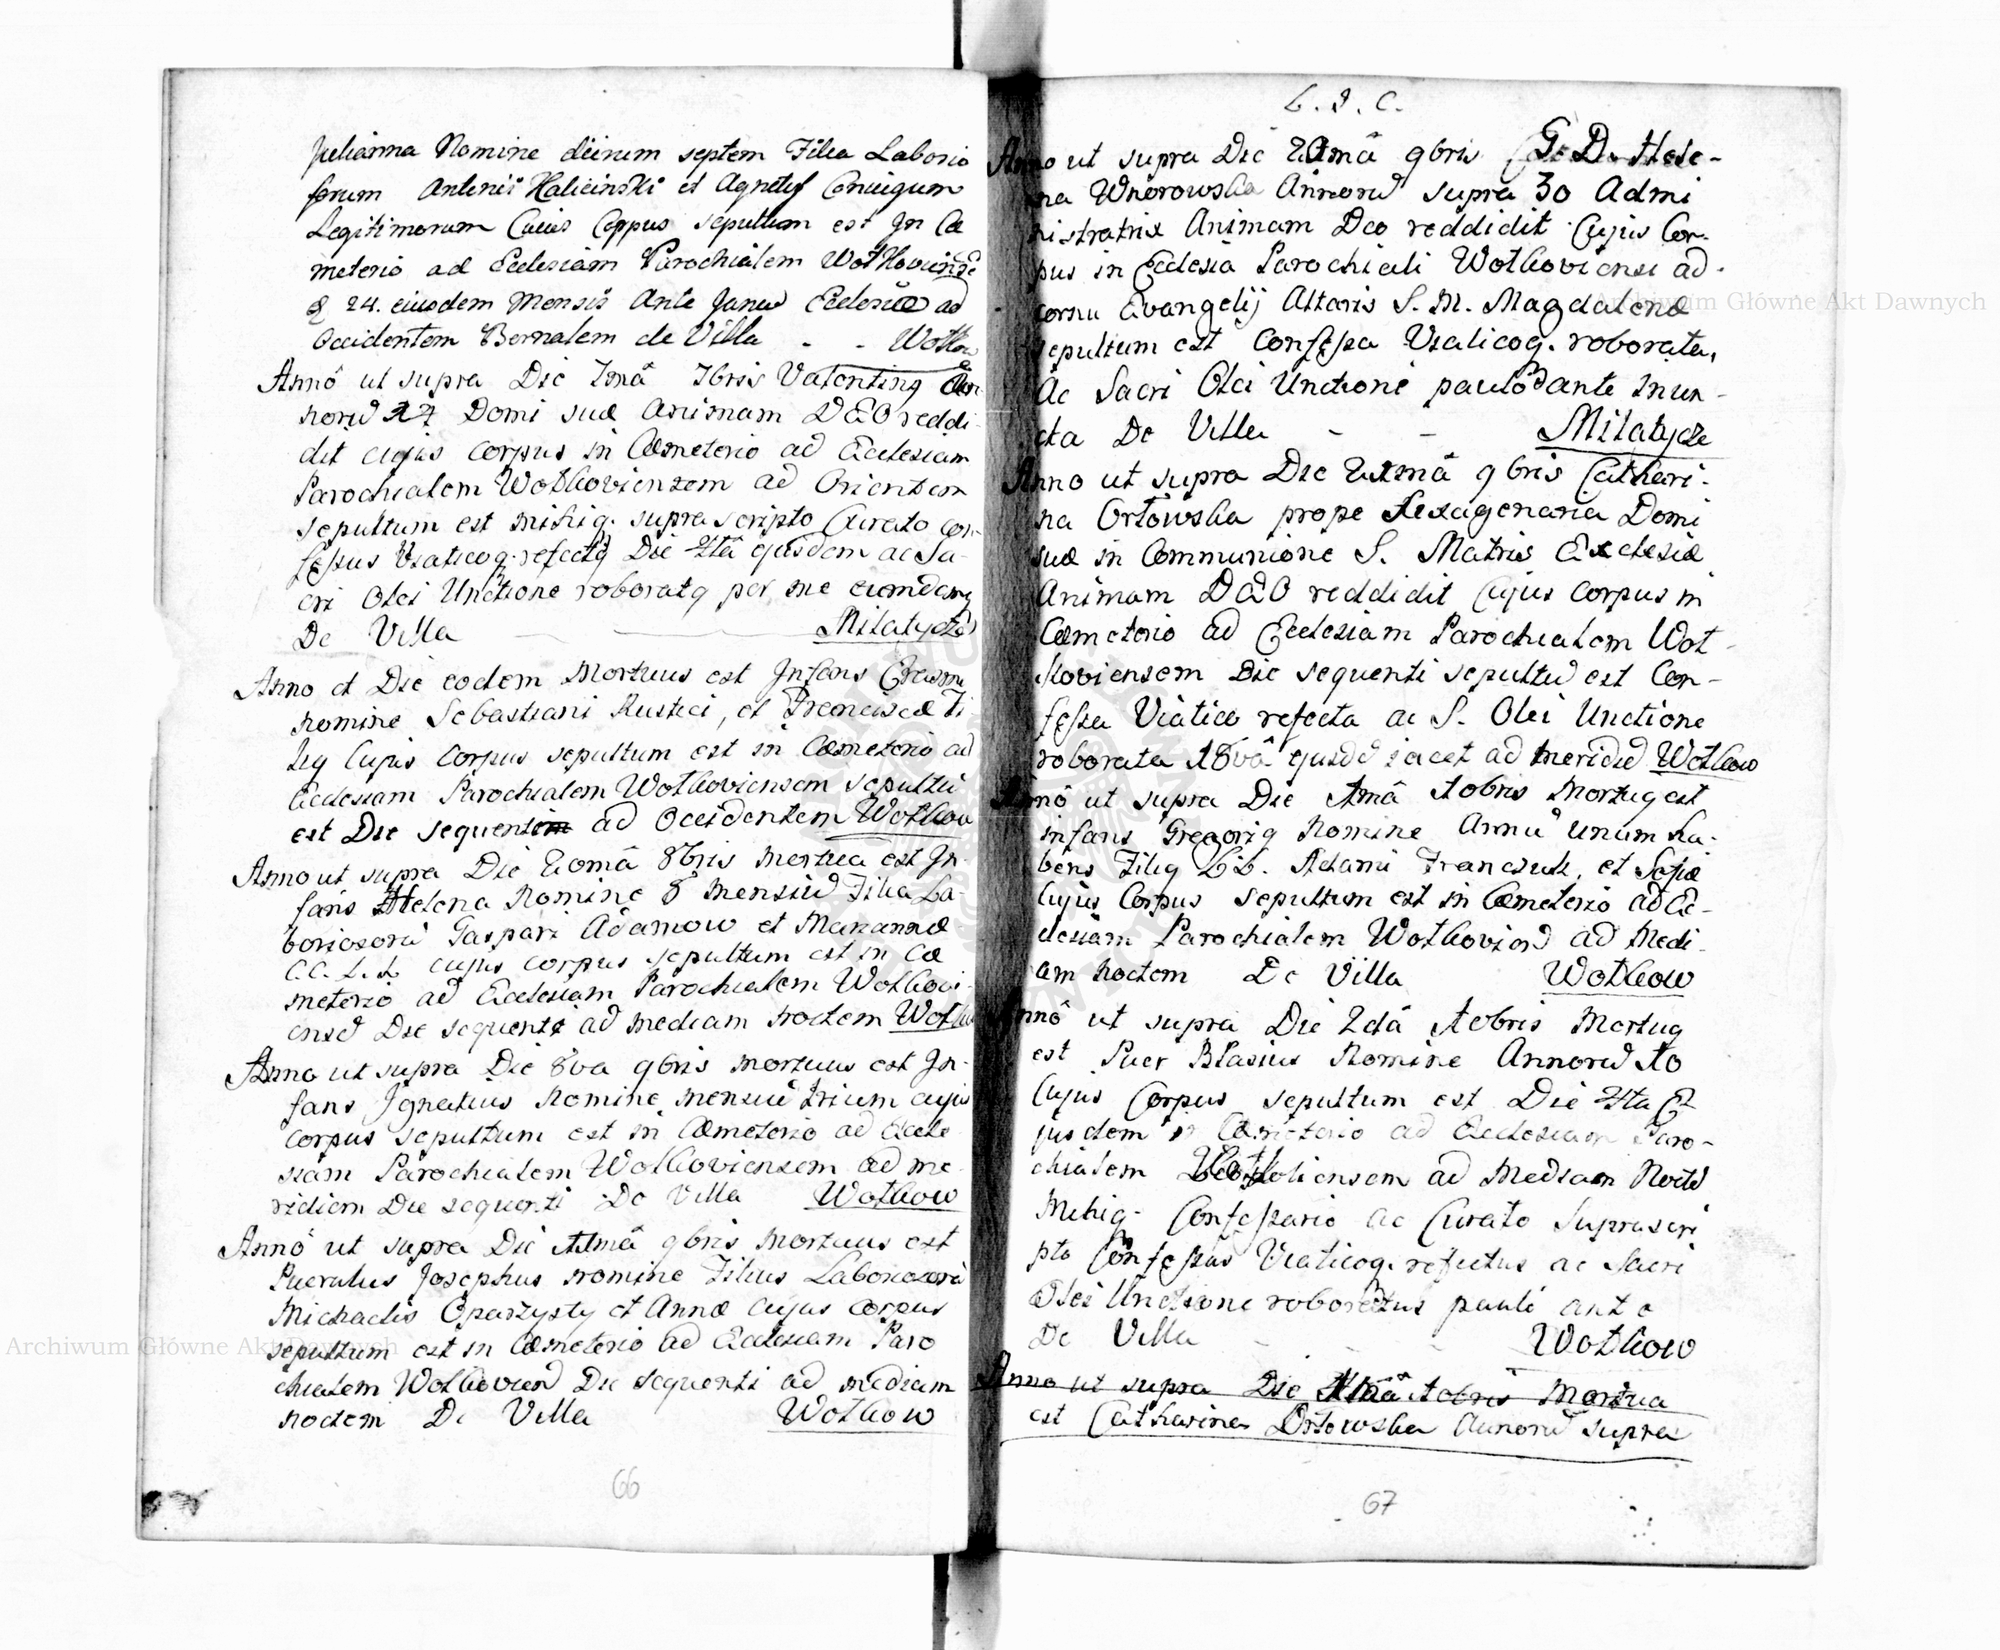 Julianna Nomine dierum septem Filia Laborio
sorum Antonii Halicinski et Agnetis Coniugum
Legitimorum Cuius Corpus sepultum est In Cæ
meterio ad Ecclesiam Parochialem Wotkovinsē
24. eiusdem Mensis Ante Januā Ecclesiæ ad
Occidentem Bernalem de Villa - - Wotkow
Annô ut supra Die 7mâ Valentinq An-
norū 27 Domi suæ Animam DEO reddi-
dit cujus corpus in Cæmeterio ad Ecclesiam
Parochialem Wotkoviensem ad Orientem
sepultum est mihiq. supra scripto Curato con-
fessus Viaticoq. refectq Die 4tâ ejusdem ac Sa-
cri Olei Unctione roboratq per me eumdemq
De Villa Milatycze
Anno et Die eodem Mortuus est Infans Erasmi
nomine Sebastiani Rustici, et Franciscæ Fi
liq Cujus Corpus sepultum est in Cæmeterio ad
Ecclesiam Parochialem Wotkoviensem
est Die sequenti ad Occidentem Wotkow
Anno ut supra Die 8bris mortua est In-
fans Helena Nomine 8 mensiū Filia La-
boriosorū Gaspari Adamow et Mariannæ
C.C. L.L cujus corpus sepultum est in Cæ
meterio ad Ecclesiam Parochialem Wotkovi-
ensē Die sequenti ad mediam noctem Wotkow
Anno ut supra Die 8va 9bris mortuus est In-
fans Ignatius Nomine mensiū trium cujus
corpus sepultum est in Cæmeterio ad Eccle
siam Parochialem Wotkoviensem ad me-
ridiem Die sequenti De Villa Wotkow
Annô ut supra Die 11mâ 9bris Mortuus est
Puerulus Josephus nomine Filius Laboriosorū
Michaelis Oparzysty et Annæ cujus corpus
sepultum est in Cæmeterio ad Ecclesiam Paro
chialem Wotkoviensē Die sequenti ad mediam
noctem De Villa Wotkow
66
L. J. C.
Anno ut supra Die 9bris G. D. Hele-
na Wnorowska Annorū supra 30 Admi
nistratrix Animam Deo reddidit Cujus Cor-
pus in Ecclesia Parochiali Wotkoviensi ad
cornu Evangelij Altaris S. M. Magdalenæ
sepultum est Confessa Viaticoq. roborata,
Ac Sacri Olei Unctione paulo ante inun-
cta De Villa - - Milatycze
Anno ut supra Die 9bris Cathari-
na Orłowska prope Sexagenaria Domi
suæ in Communione S. Matris Ecclesiæ
Animam DEO reddidit Cujus corpus in
Cæmeterio ad Ecclesiam Parochialem Wot-
koviensem Die sequenti sepultū est Con-
fessa Viatico refecta ac S. Olei Unctione
roborata 18vâ ejusdē iacet ad meridiē Wotkow
Annô ut supra Die 1mâ Xobris Mortuq est
infans Gregoriq Nomine Annū unum ha-
bens Filiq LL. Adami Franczuk, et Sofiæ
Cujus Corpus sepultum est in Cæmeterio ad Ec-
clesiam Parochialem Wotkoviensē ad Medi-
am noctem De Villa Wotkow
Annô ut supra Die 2dâ Xobris Mortuq
est Puer Blasius Nomine Annorū 10
Cujus Corpus sepultum est Die 4ta E-
jusdem in Cæmeterio ad Ecclesiam Paro-
chialem ad Mediam Noctē
Mihiq- Confessario ac Curato Suprascri
pto Confessus Viaticoq. refectus ac Sacri
Olei Unctione roboratus pauló ante
De Villa - - - Wotkow
Anno ut supra Die Xobris Mortua
est Catharina Orłowska Annorū supra
67
Archiwum Główne Akt Dawnych
Archiwum Główne Akt Dawnych